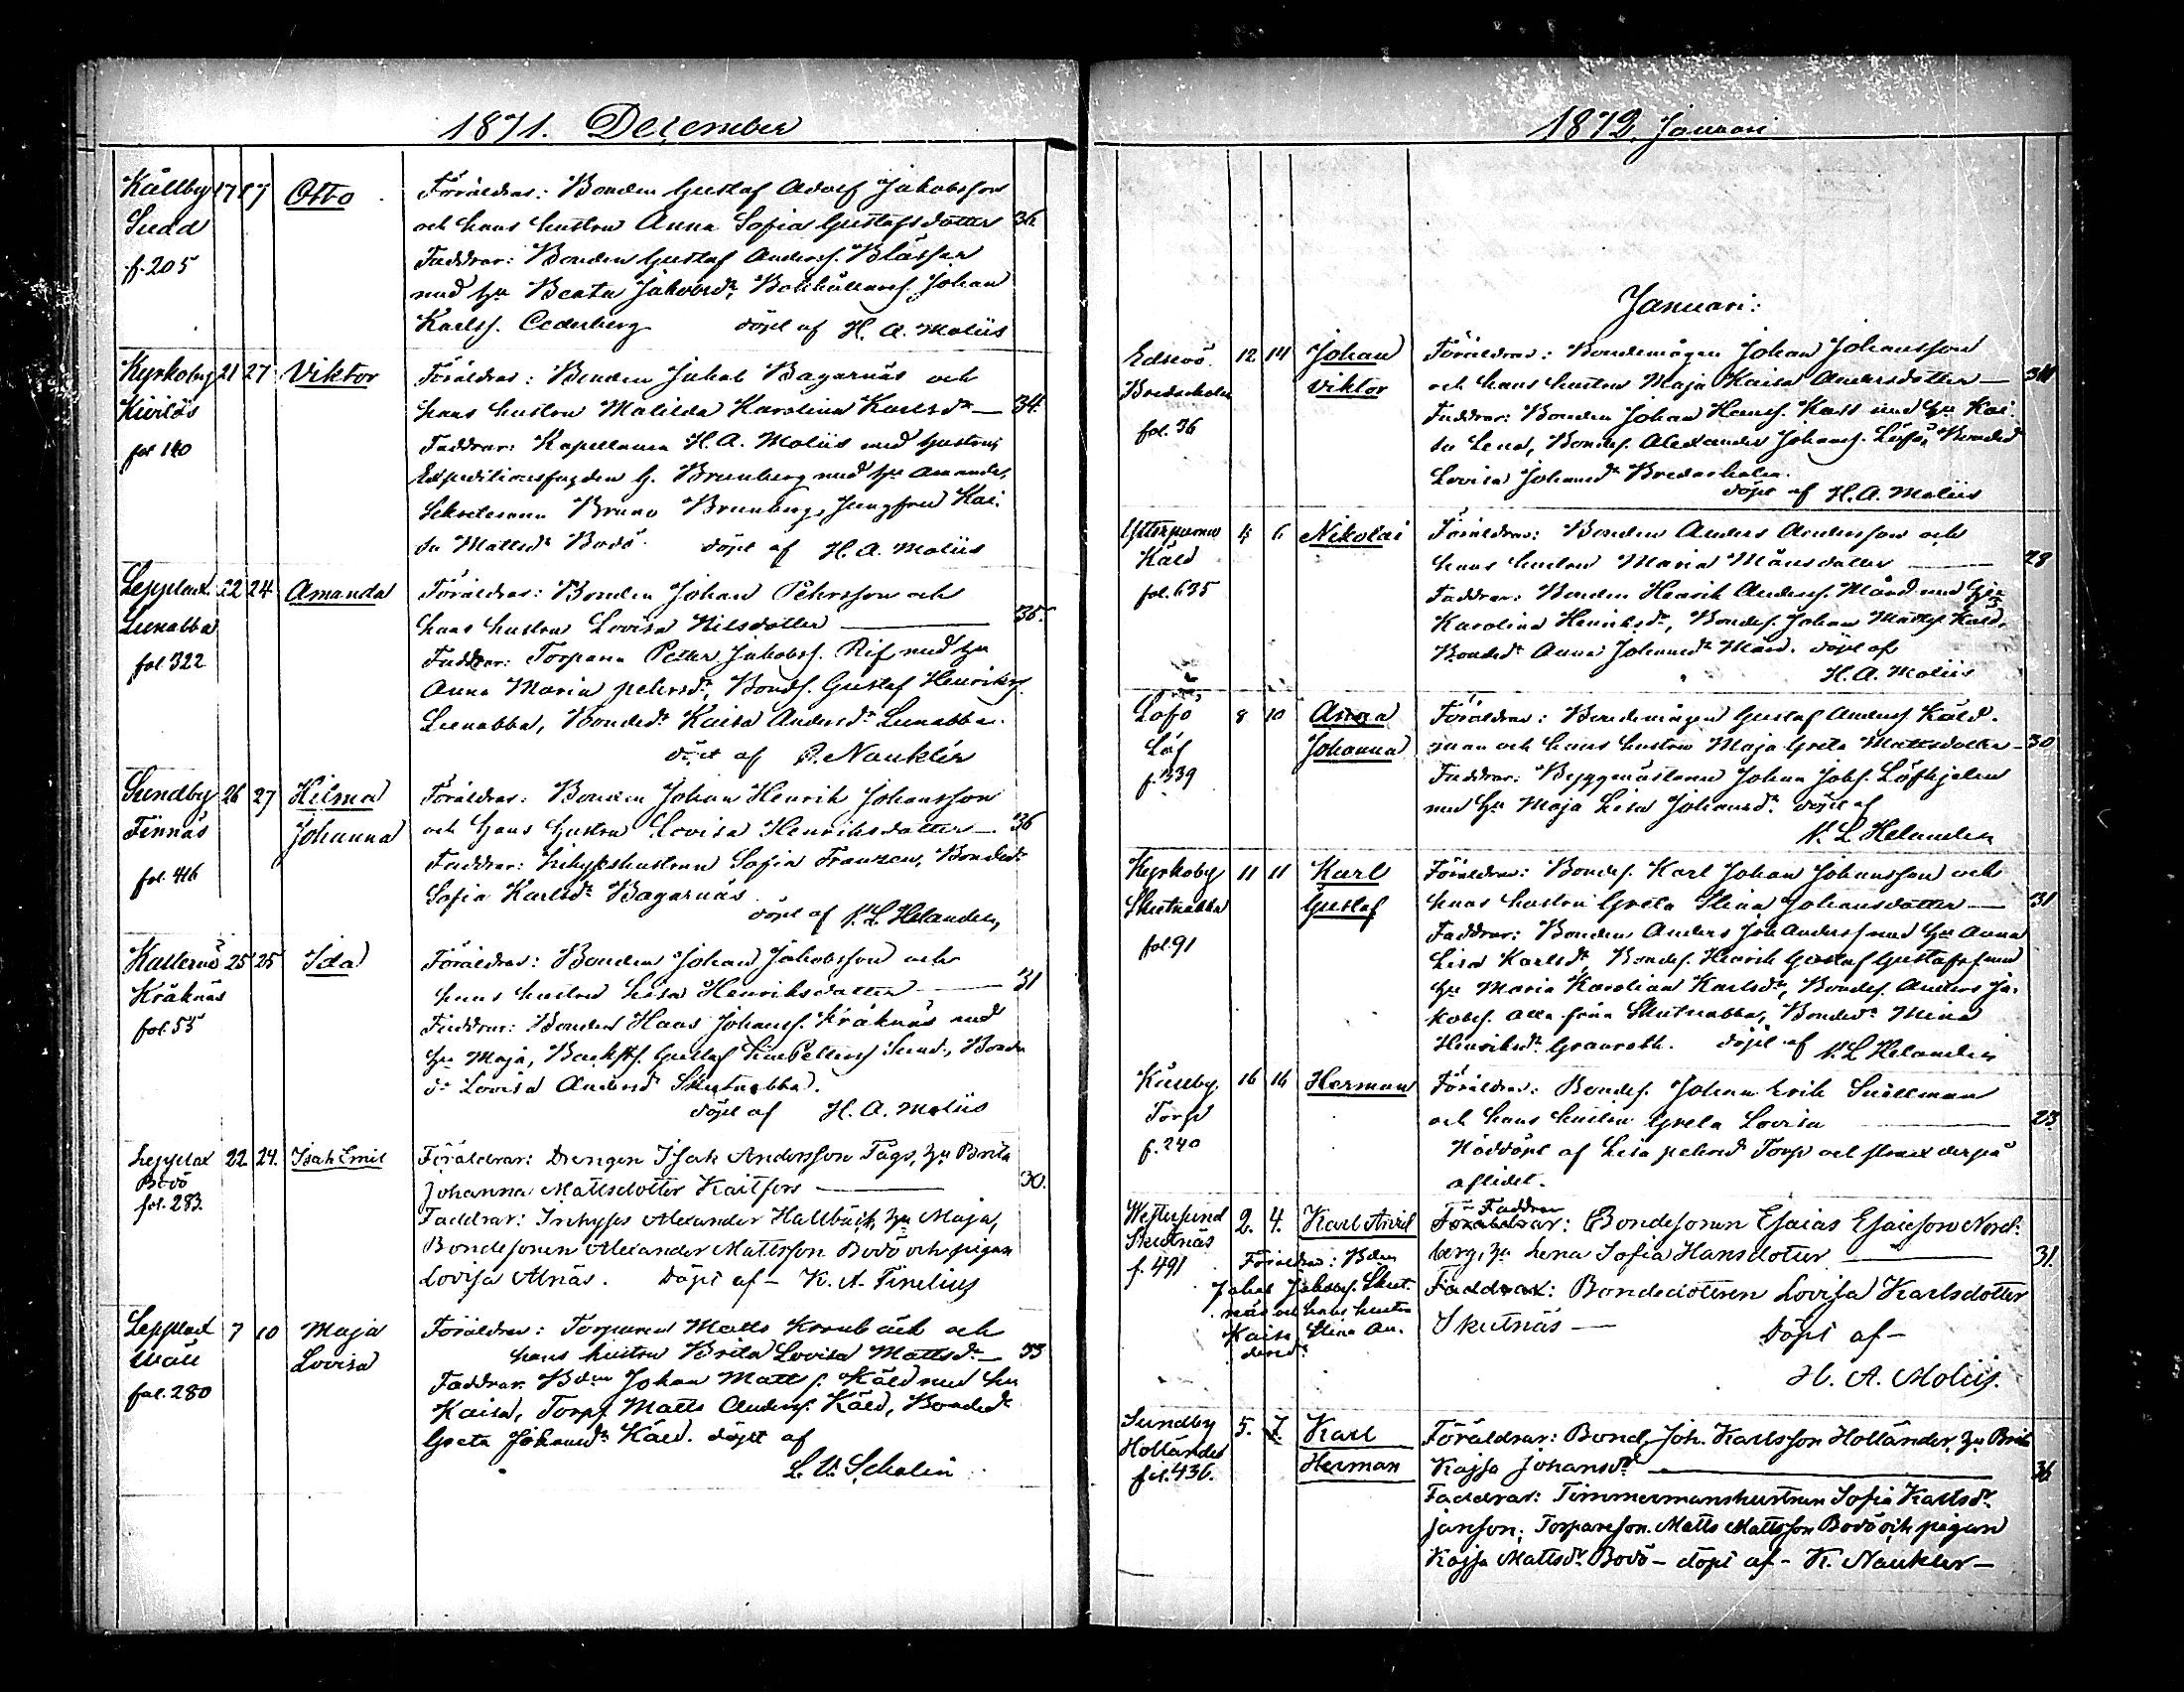 1871. December
Källby 17 17 Otto Föräldrar: Bonden Gustaf Adolf Jakobsson
Sudd och hans hustru Anna Sofia Gustafsdotter 36.
f. 205 Faddrar: Bonden Gustaf Anderss. Blässar
med hu Beata Jakobsdr, Johan
Karlss. Cederberg döpt af H. A. Moliis
Kyrkoby 21 27 Viktor Föräldrar: Bonden Jakob Bagarnäs och
Kivilös hans hustru Matilda Karolina Karlsdr — 34.
fol 140 Faddrar: Kapellanen H. A. Moliis med hustru,
Expeditionsfogden G. Brunberg med hu Amanda,
Bruno Brunberg, Jungfru Kai-
sa Mattsdr Bodö. döpt af H. A. Moliis
Lepplax 22 24 Amanda Föräldrar: Bonden Johan Pehrsson och
Lunabba hans hustru Lovisa Nilsdotter — 35.
fol 322 Faddrar: Torparen Petter Jakobss. Rif med hu
Anna Maria pehrsdr, Bonds. Gustaf Henrikss.
Lunabba, Bondedr Kaisa Andersdr Lunabba.
döpt af P. Nauklér
Sundby 26 27 Hilma Föräldrar: Bonden Johan Henrik Johansson
Finnäs Johanna och hans hustru Lovisa Henriksdotter — 36
fol. 416 Faddrar: Inhyseshustrun Sofia Franzen, Bondedr
Sofia Karlsdr Bagarnäs.
döpt af N. L. Helander,
Kallernö 25 25 Ida Föräldrar: Bonden Johan Jakobsson och
Kråknäs hans hustru Lisa Henriksdotter — 31
fol. 55 Faddrar: Bonden Hans Johanss. Kråknäs med
hu Maja, Gustaf Petterss Sund, Bonde
dr Lovisa Andersdr Skutnabba.
döpt af H. A. Moliis
Lepplax 22. 24. Isak Emil Föräldrar: Drengen Isak Andersson Fågs, hu Brita
Bodö Johanna Mattsdotter Kaitfors — 30.
fol. 283. Faddrar: Inhyses Alexander Hallbäck, hu Maja,
Bondesonen Alexander Mattsson Bodö och pigan
Lovisa Alnäs. Döpt af — K. A. Finelius
Lepplax 7 10 Maja Föräldrar: Torparen Matts Kronbäck och
Wäll Lovisa hans hustru Brita Lovisa Mattsdr — 33
fol. 280 Faddrar. Bden Johan Matts s. Käld med hu
Kaisa, Torps. Matts Anderss. Käld, Bondedr
Greta Johansdr Käld. döpt af
L. V. Schalin
1872 Januari
Januari:
Edsevö 12 14 Johan Föräldrar: Bondemågen Johan Johansson
Bredarholm Viktor och hans hustru Maja Kaisa Andersdotter —
fol. 36 Faddrar: Bonden Johan Hanss. Kass med hu Kai-
sa Lena, Bondes. Alexander Johanss. Löfsö, Bondedr
Lovisa Johansdr Bredarholm.
döpt af H. A. Moliis
Ytterpurmo 5 6 Nikolai Föräldrar: Bonden Anders Andersson och
Käld hans hustru Maria Månsdotter — 28
fol. 635 Faddrar: Bonden Henrik Anderss. Mård med hu
Karolina Henriksdr, Bondes. Johan Mattss Käld,
Bondedr Anna Johansdr Mård. döpt af
H. A. Moliis
Lafö 8 10 Anna Föräldrar: Bondemågen Gustaf Anderss Käld-
Löf Johanna man och hans hustru Maja Greta Mattsdotter — 30
f. 339 Faddrar: Byggmästaren Johan Johs. Löfhjelm
med hu Maja Lisa Johansdr. döpt af
N. L. Helander
Kyrkoby 11 11 Karl Föräldrar: Bondes. Karl Johan Johansson och
Skutnabba Gustaf hans hustru Greta Stina Johansdotter — 31
fol. 91 Faddrar: Bonden Anders Joh Anderss med hu Anna
Lisa Karlsdr, Bondes. Henrik Gustaf Gustafss med
hu Maria Karolina Karlsdr, Bondes. Anders Ja-
kobs. alla från Skutnabba, Bondedr Mina
Henriksdr Granroth. döpt af N. L. Helander
Källby 16 16 Herman Föräldrar: Bondes. Johan Erik Snellman
Torp och hans hustru Greta Lovisa — 23
f. 240 Nöddöpt af Lisa pehrsdr Torp och strax derpå
aflidet.
Westersund 2. 4. Karl Anril Föräldrar: Faddrar Bondesonen Esaias Esaiesson Nord-
Skutnäs berg, hu Lena Sofia Hansdotter — 31.
f. 491 Föräldrar: Bden
Jakob Jakobss. Skut-
näs och hans hustru
Kaisa Stina An-
dersdr.
Faddrar: Bondedottren Lovisa Karlsdotter
Skutnäs — Döpt af —
H. A. Moliis.
Sundby 5. 7. Karl Föräldrar: Bond. Joh. Karlsson Holländer, hu Brita
Holländer Herman Kajsa Johansdr — 36
fol. 436. Faddrar: Timmermanshustrun Sofia Karlsdr
Jansson, Torpareson. Matts Mattsson Bodö och pigan
Kajsa Mattsdr Bodö — döpt af — K. Nauklér —